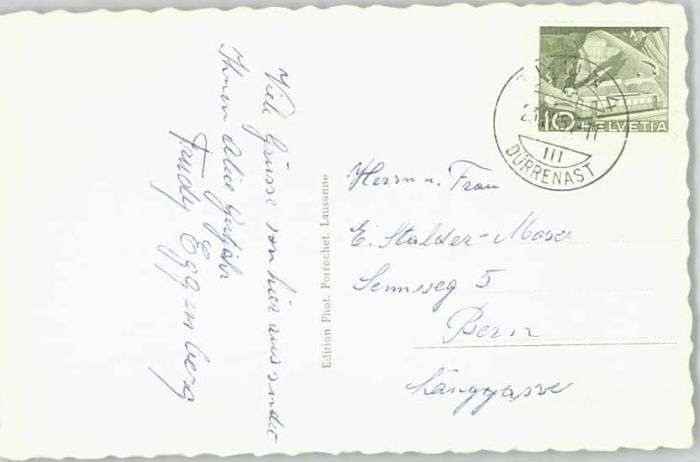 Viele Grüsse von hier aus sendet
Ihnen
Trudy Eggenberg
Edition Phot. Perrochet. Lausanne
10 HELVETIA
III
DÜRRENAST
Herrn u. Frau
E. Stalder-Moser
Sennweg 5
Bern
Länggasse